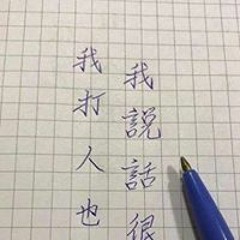 我說話很
我打人也